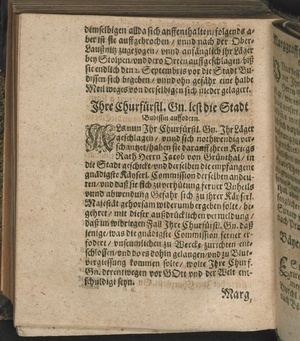 dimselbigen allda sich auffenthalten / folgends a-
ber ist sie auffgebrochen / vnnd nach der Ober-
Laußnitz zugezogen / vnd anfänglich ihr Läger
bey Stolpen vnd dero Orten auffgeschlagen / biß
sie endlich den 2. Septembris vor die Stadt Bu-
dissen sich begeben / vnnd vngefähr eine halbe
Meil weges von derselbigen sich nieder gelagert.
Ihre Churfürstl. Gn. lest die Stadt
Budissin auffodern.
ALs nun Ihr Churfürstl. Gn. Ihr Läger
geschlagen / vnnd sich nothwendig ver-
schantzet / haben sie darauff ihren Kriegs
Rath Herrn Jacob von Grünthal / in
die Stadt geschickt / vnd derselben die empfangene
gnädigste Käyserl. Commission derselben andeu-
ten / vnd daß sie sich zu verhütung ferner Vnheils
vnnd abwendung Gefahr sich zu ihrer Käyserl.
Majestät gehorsam widerumb ergeben solte / be-
gehret / mit dieser außdrücklichen vermeldung /
daß im widrigen Fall Ihre Churfürstl. Gn. daß
jenige / was die gnädigste Commission ferner er-
fodert / vnseumlichen zu Wercke zurichten ent-
schlossen / vnd do es dohin gelangen / vnd zu Blut-
vergiessung kommen solte / wolte Ihre Churf.
Gn. derentwegen vor GOtt vnd der Welt ent-
schüldiget seyn.
Marg,